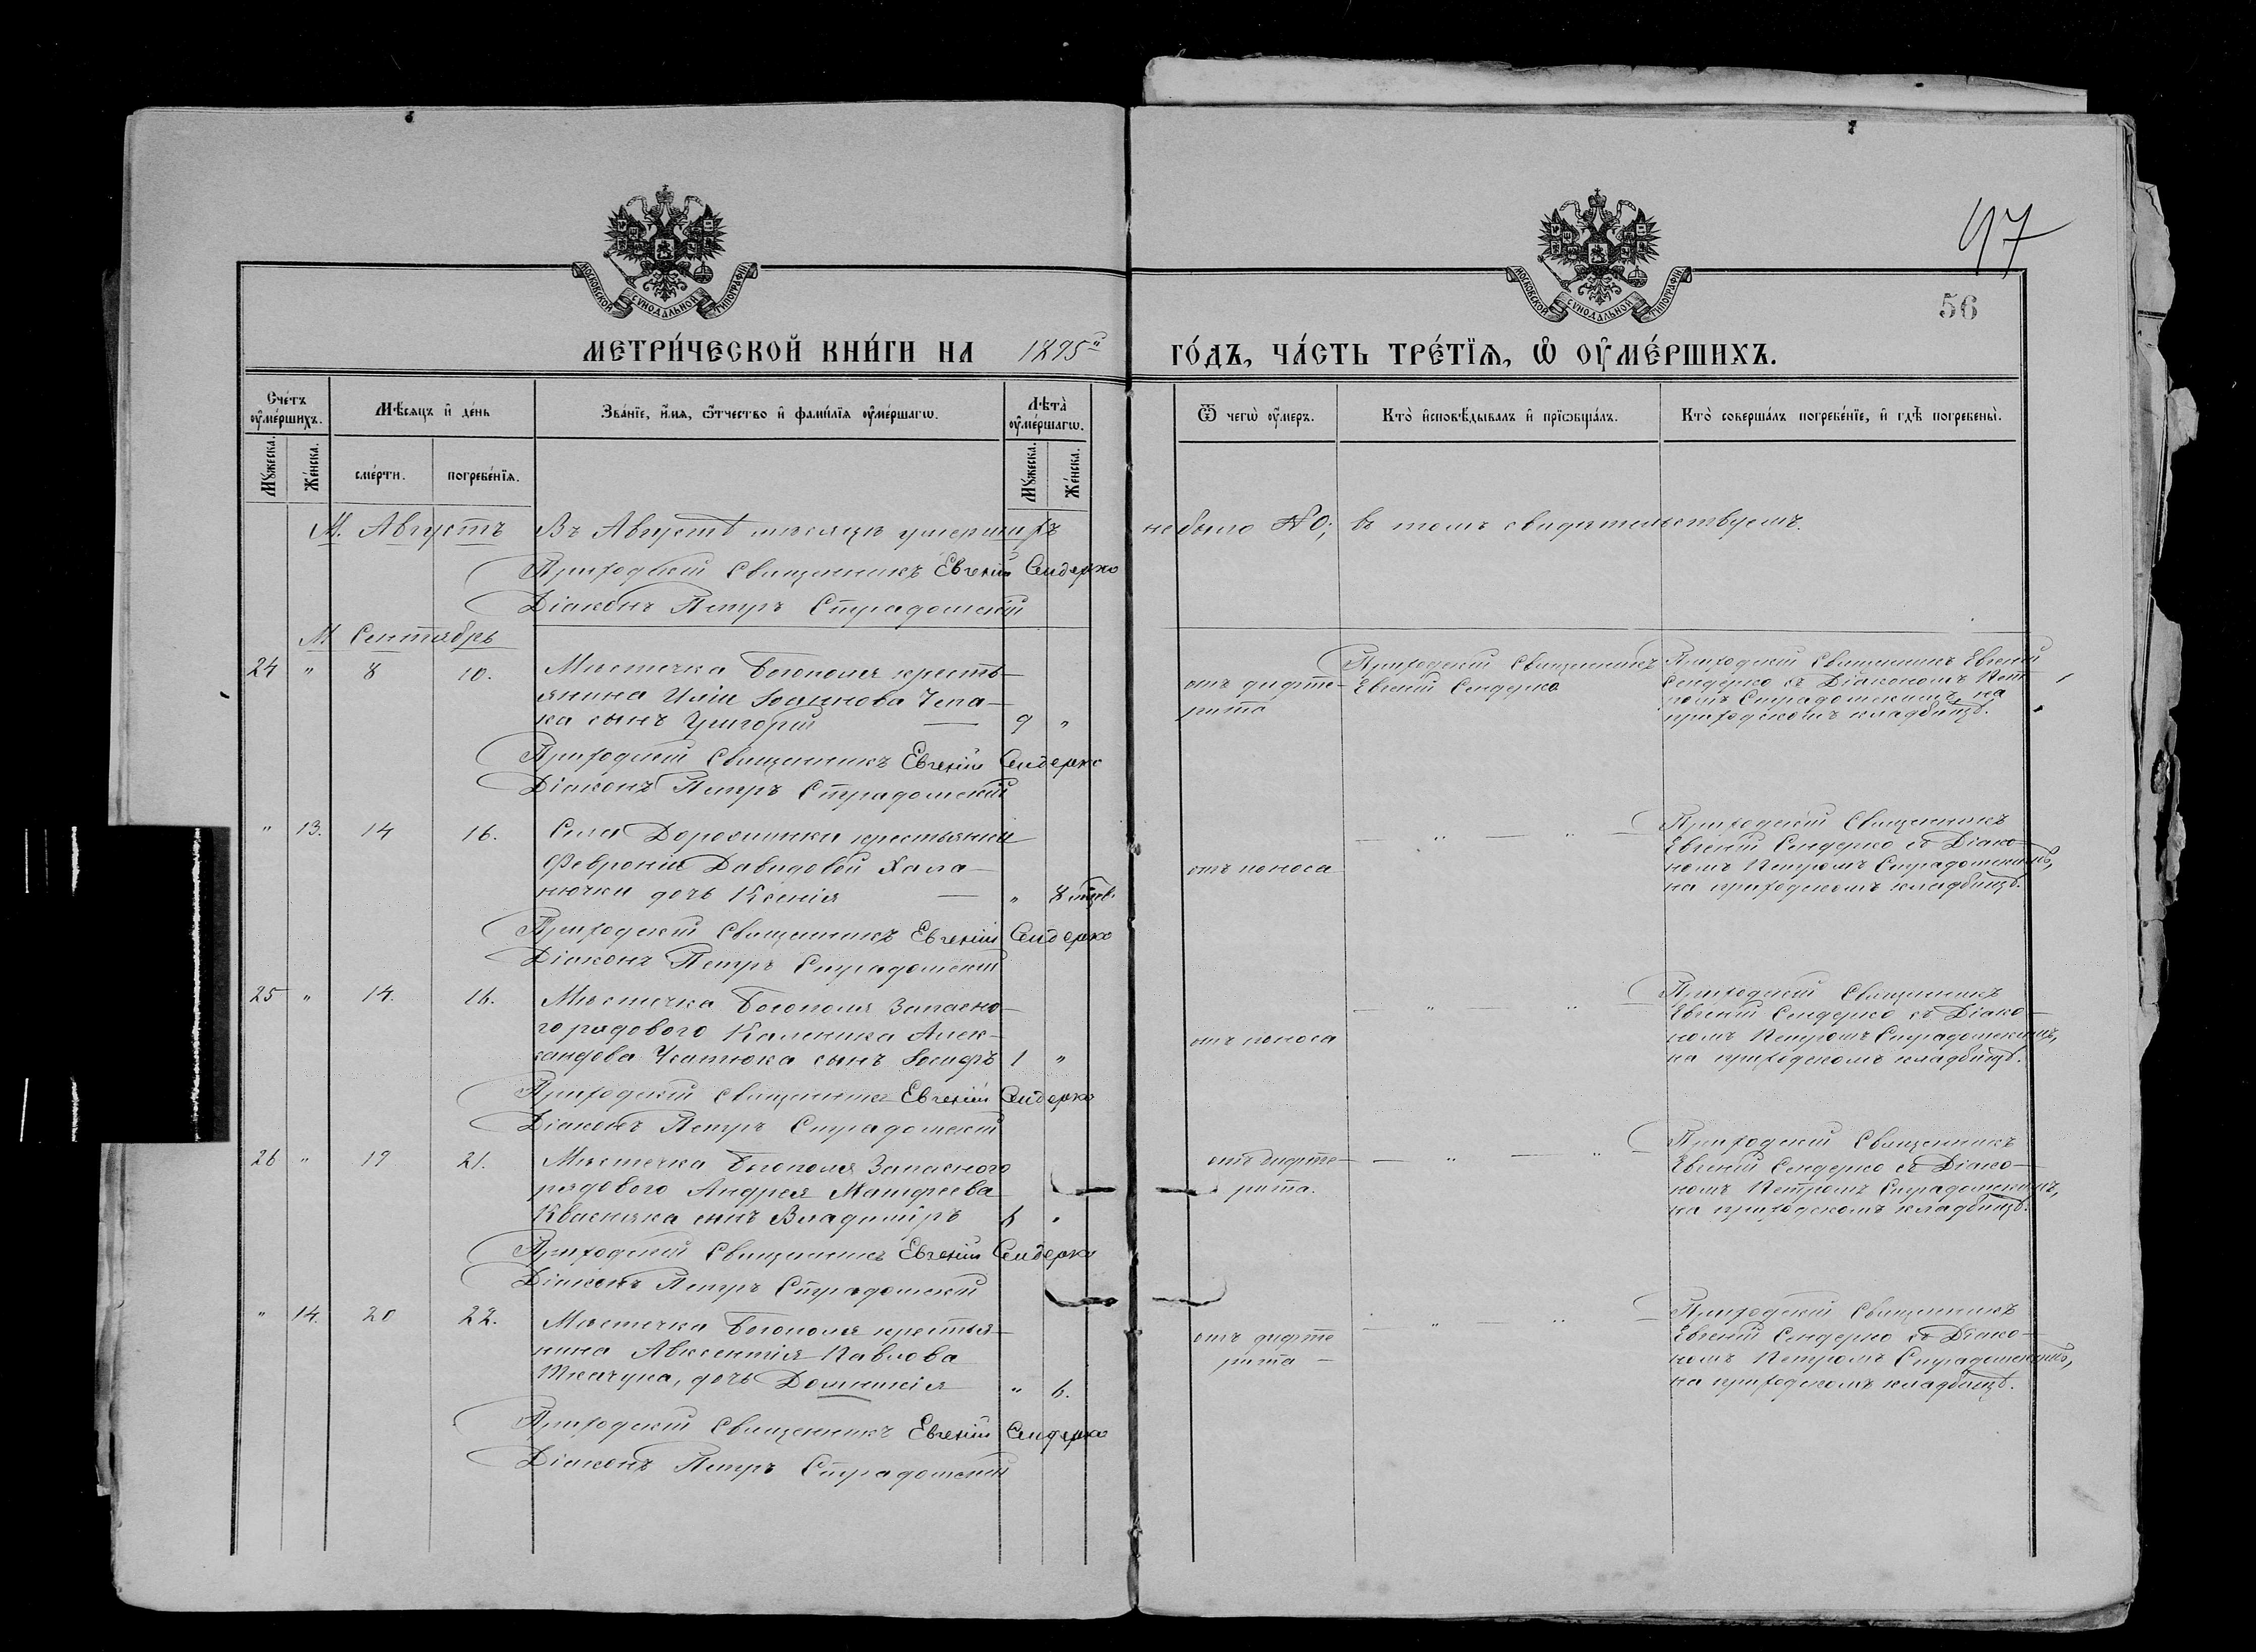 МОСКОВСКОЙ СѴНОДАЛЬНОЙ ТИПОГРАФІИ
МОСКОВСКОЙ СѴНОДАЛЬНОЙ ТИПОГРАФІИ
97
56
МЕТРИ́ЧЕСКОЙ КНИ́ГИ НА 1895й ГО́ДЪ, ЧА́СТЬ ТРЕ́ТЇѦ, Ѡ ОУ҆МЕ́РШИХЪ.
Счетъ оу҆ме́ршихъ.
Мꙋ́жеска.
Же́нска.
Мѣ́сѧцъ и҆ де́нь
сме́рти.
погребе́нїѧ.
Зва́нїе, и҆́мѧ, ѻ҆́тчество и҆ фами́лїѧ оу҆ме́ршагѡ.
Лѣта̀ оу҆ме́ршагѡ.
Мꙋ́жеска.
Же́нска.
Ѿ чегѡ̀ оу҆́меръ.
Кто̀ и҆сповѣ́дывалъ и҆ прїѡбща́лъ.
Кто̀ соверша́лъ погребе́нїе, и҆ гдѣ̀ погребены̀.
М. Августъ Въ Августѣ мѣсяцѣ умершихъ не было № 0; въ томъ свидѣтельствуемъ.
Приходскій Священникъ Евгеній Сендерко
Діаконъ Петръ Страдомскій
М Сентябрь
24 " 8 10. Мѣстечка Богополя кресть-
янина Иліи Іоаннова Чепа-
ка сынъ Григорій — 9 "
отъ дифте-
рита
Приходскій Священникъ
Евгеній Сендерко
Приходскій Священникъ Евгеній
Сендерко съ Діакономъ Пет-
ромъ Страдомскимъ, на
приходскомъ кладбищѣ.
Приходскій Священникъ Евгеній Сендерко
Діаконъ Петръ Страдомскій
" 13. 14 16. Села Дорошинки крестьянки
Февроніи Давидовой Хала-
нючки дочь Ксенія — " 8 мѣс.
отъ поноса — " — " —
Приходскій Священникъ
Евгеній Сендерко съ Діако-
номъ Петромъ Страдомскимъ,
на приходскомъ кладбищѣ.
Приходскій Священникъ Евгеній Сендерко
Діаконъ Петръ Страдомскій
25 " 14. 16. Мѣстечка Богополя Запасно-
го рядового Каленика Алек-
сандрова сынъ Іосифъ 1 "
отъ поноса — " — " —
Приходскій Священникъ
Евгеній Сендерко съ Діако-
номъ Петромъ Страдомскимъ,
на приходскомъ кладбищѣ.
Приходскій Священникъ Евгеній Сендерко
Діаконъ Петръ Страдомскій
26 " 19 21. Мѣстечка Богополя Запасного
рядового Андрея Матфеева
Квасняка сынъ Владиміръ "
отъ дифте-
рита. — " — " —
Приходскій Священникъ
Евгеній Сендерко съ Діако-
номъ Петромъ Страдомскимъ,
на приходскомъ кладбищѣ.
Приходскій Священникъ Евгеній Сендерко
Діаконъ Петръ Страдомскій
" 14. 20 22. Мѣстечка Богополя крестья-
нина Авксентія Павлова
Ткачука, дочь Домникія " 6.
отъ дифте
рита — — " — " —
Приходскій Священникъ
Евгеній Сендерко съ Діако-
номъ Петромъ Страдомскимъ,
на приходскомъ кладбищѣ.
Приходскій Священникъ Евгеній Сендерко
Діаконъ Петръ Страдомскій